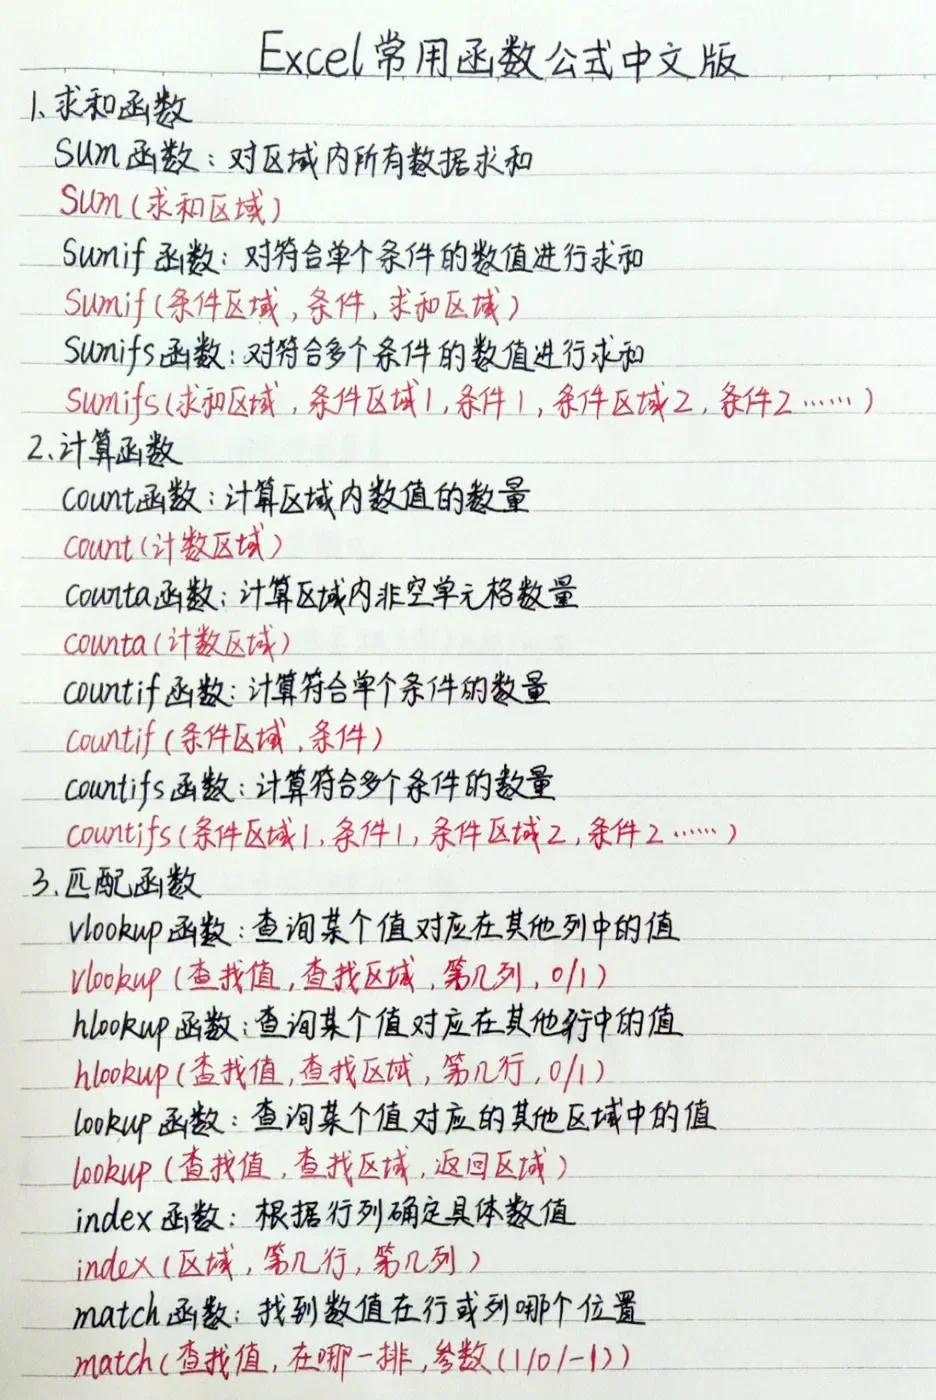 Excel常用函数公式中文版
1、求和函数
Sum函数：对区域内所有数据求和
Sum(求和区域)
Sumif函数：对符合单个条件的数值进行求和
Sumif(条件区域,条件,求和区域)
Sumifs函数：对符合多个条件的数值进行求和
Sumifs(求和区域,条件区域1,条件1,条件区域2,条件2……)
2、计算函数
count函数：计算区域内数值的数量
count(计数区域)
counta函数：计算区域内非空单元格数量
counta(计数区域)
countif函数：计算符合单个条件的数量
countif(条件区域,条件)
countifs函数：计算符合多个条件的数量
countifs(条件区域1,条件1,条件区域2,条件2……)
3、匹配函数
vlookup函数：查询某个值对应在其他列中的值
vlookup(查找值,查找区域,第几列,0/1)
hlookup函数：查询某个值对应在其他行中的值
hlookup(查找值,查找区域,第几行,0/1)
lookup函数：查询某个值对应的其他区域中的值
lookup(查找值,查找区域,返回区域)
index函数：根据行列确定具体数值
index(区域,第几行,第几列)
match函数：找到数值在行或列哪个位置
match(查找值,在哪一排,参数(1/0/-1))